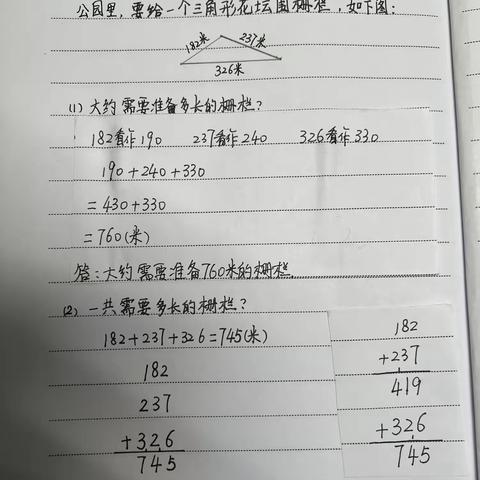 公园里，要给一个三角形花坛围栅栏，如下图：
182米 237米
326米
(1) 大约需要准备多长的栅栏？
182看作190 237看作240 326看作330
190+240+330
=430+330
=760(米)
答：大约需要准备760米的栅栏。
(2) 一共需要多长的栅栏？
182+237+326=745(米)
182
237
+326
745
182
+237
419
+326
745